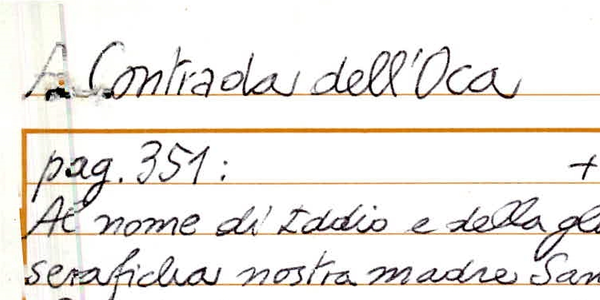 A Contrada dell'Oca
pag. 351: +
Al nome di Iddio e della gl
serafica nostra madre San